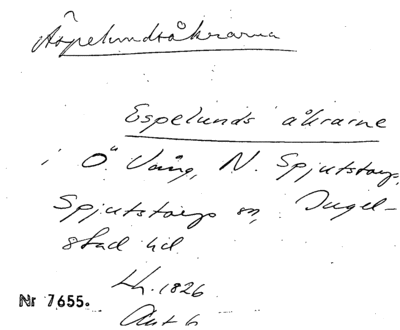 Äspelundsåkrarna
Espelunds åkrarne
i Ö. Vång, N. Spjutstorp,
Spjutstorps sn, Ingel-
stad hd
Lh. 1826
Nr 7655.
Akt 6